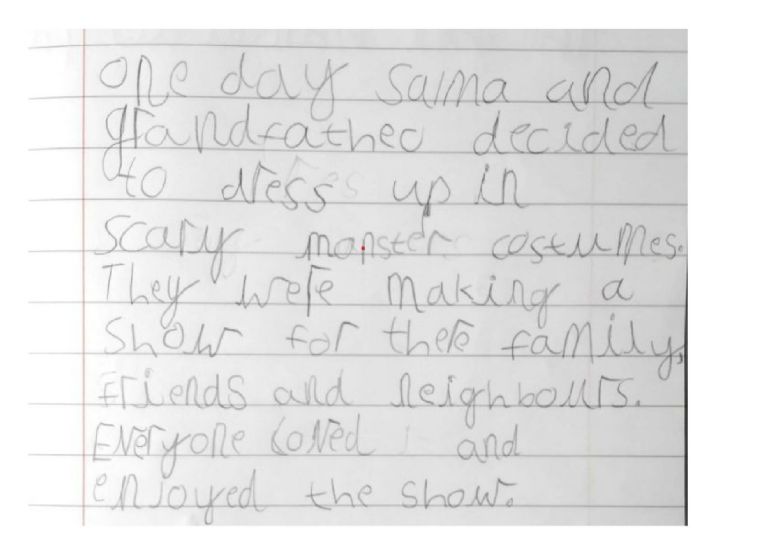 one day Saima and
grandfatheo decided
to dress up in
scary manster costumes.
They were making a
show for there family,
Friends and neighbours.
Everyone loved and
enjoyed the show.